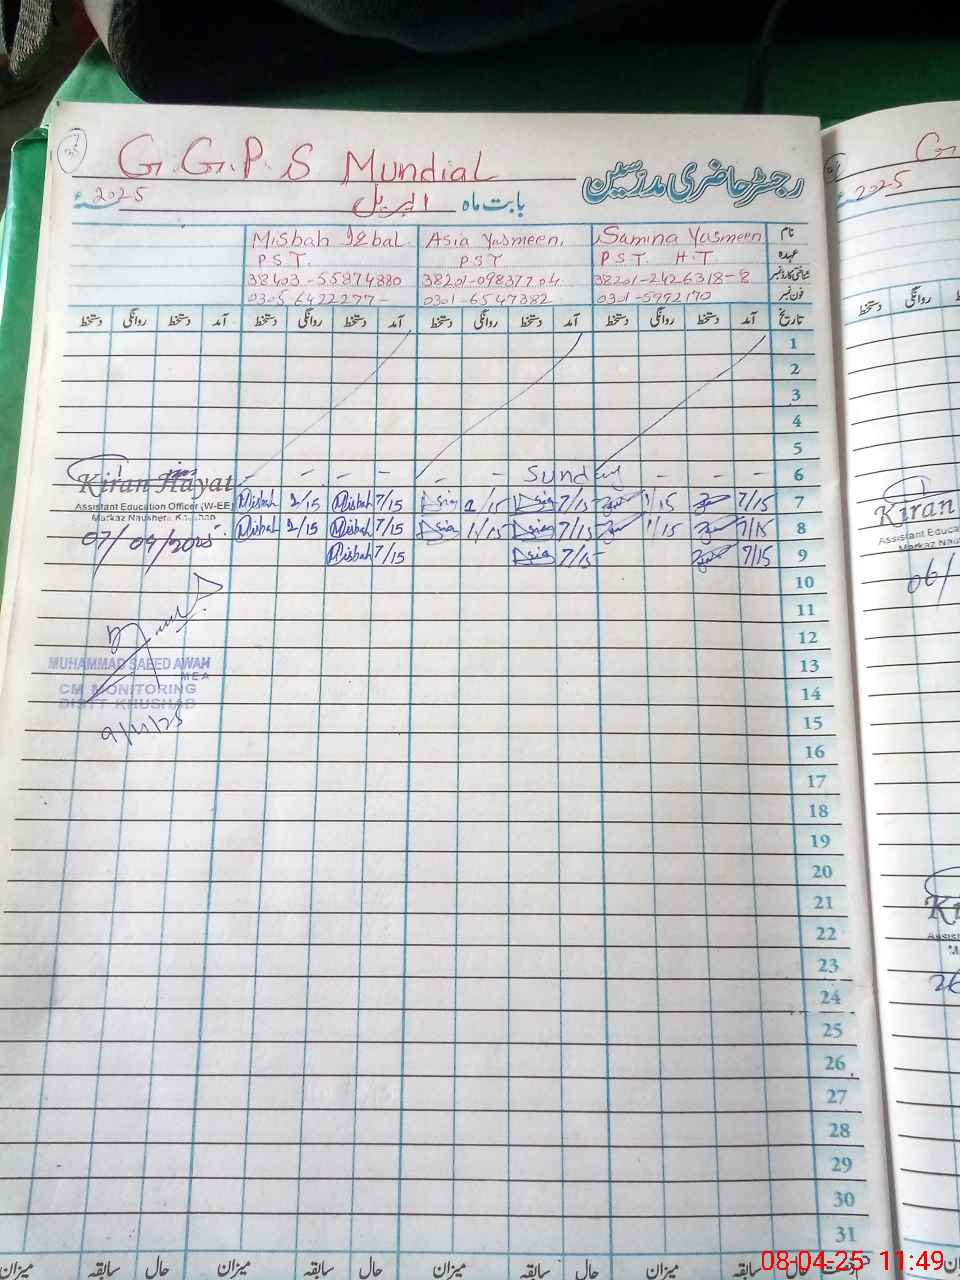 G.G.P.S Mundial
رجسٹر حاضری مدرسین
بابت ماہ اپریل 2025ء
نام Samina Yasmeen Asia Yasmeen, Misbah Iqbal
عہدہ P.S.T. H.T. PST P.S.T.
شناختی کارڈ نمبر 38201-2426318-8 38403-55874880
فون نمبر 0301-5992170 0301-6547382 0305 6422277-
تاریخ آمد دستخط روانگی دستخط آمد دستخط روانگی دستخط آمد دستخط روانگی دستخط آمد دستخط روانگی دستخط
1
2
3
4
5
6 - - - Sunday - - - - -
7 7/15 1/15 7/15 Asia 1/15 Asia 7/15 Misbah 1/15 Misbah
8 7/15 1/15 7/15 Asia 1/15 Asia 7/15 Misbah 1/15 Misbah
9 7/15 7/15 Asia 7/15 Misbah
10
11
12
13
14
15
16
17
18
19
20
21
22
23
24
25
26
27
28
29
30
31
Kiran Hayat
Assistant Education Officer (W-EE)
Markaz Naushera Khushab
07/04/2025
MUHAMMAD SAEED AWAN
MEA
CM MONITORING
DISTT KHUSHAB
9/4/25
سابقہ حال میزان سابقہ حال میزان سابقہ حال میزان سابقہ حال میزان
2025
دستخط روانگی
Kiran
Assistant Educa
Markaz Nau
06/
26
08-04-25 11:49